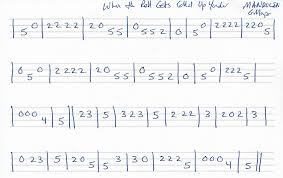 When the Roll Gets Called Up Yonder MANDOLIN
| 5 0 | 2222 | 20 5 5 | 0552 | 0 5 0 | 2222 | 220 5 |
0 5 0 | 2222 | 20 5 5 | 0552 | 0 5 0 | 222 5 |
000 4 | 5 || 23 5 | 3 5 3 | 5 | 222 | 3 | 202 | 3
0 23 | 5 | 20 5 5 | 3 | 30 | 222 5 | 000 4 | 5 ||